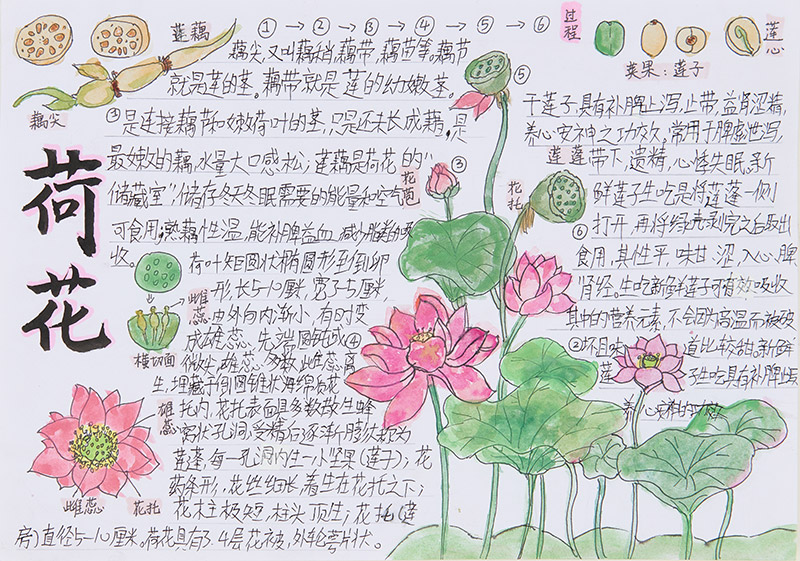 莲藕
①→②→③→④→⑤→⑥
过程
莲心
坚果：莲子
藕尖
荷花
藕尖,又叫藕梢,藕带,藕苗等。藕节
就是莲的茎。藕带就是莲的幼嫩茎。
③是连接藕节和嫩荷叶的茎,只是还未长成藕,是
最嫩的藕,水量大口感松;莲藕是荷花的
"储藏室",储存冬天冬眠需要的能量和空气
可食用;熟藕性温,能补脾益血,减少脂类的吸
收。
荷叶矩圆状椭圆形至倒卵
形,长5-10厘米,宽3-5厘米,
由外向内渐小,有时变
成雄蕊,先端圆钝或
微尖,雄蕊多数,雌蕊离
生,埋藏于倒圆锥状海绵质花
托内,花托表面具多数散生蜂
窝状孔洞,受精后逐渐膨大称为
莲蓬,每一孔洞内生一小坚果(莲子);花
药条形,花丝细长,着生在花托之下;
花柱极短,柱头顶生;花托(莲
房)直径5-10厘米。荷花具有3.4层花被,外轮萼片状。
雌蕊
横切面
雄蕊
雌蕊
花托
花苞
③
⑤
花托
莲蓬
④
干莲子,具有补脾止泻,止带,益肾涩精,
养心安神之功效。常用于脾虚泄泻,
带下,遗精,心悸失眠。新
鲜莲子生吃是将莲蓬一侧
⑥打开,再将绿壳剥完之后取出
食用,其性平,味甘、涩,入心、脾
肾经。生吃新鲜莲子可有效吸收
其中的营养元素,不会因为高温而被破
②坏且味道比较甜。新鲜
莲子生吃具有补脾止泻
养心安神的功效